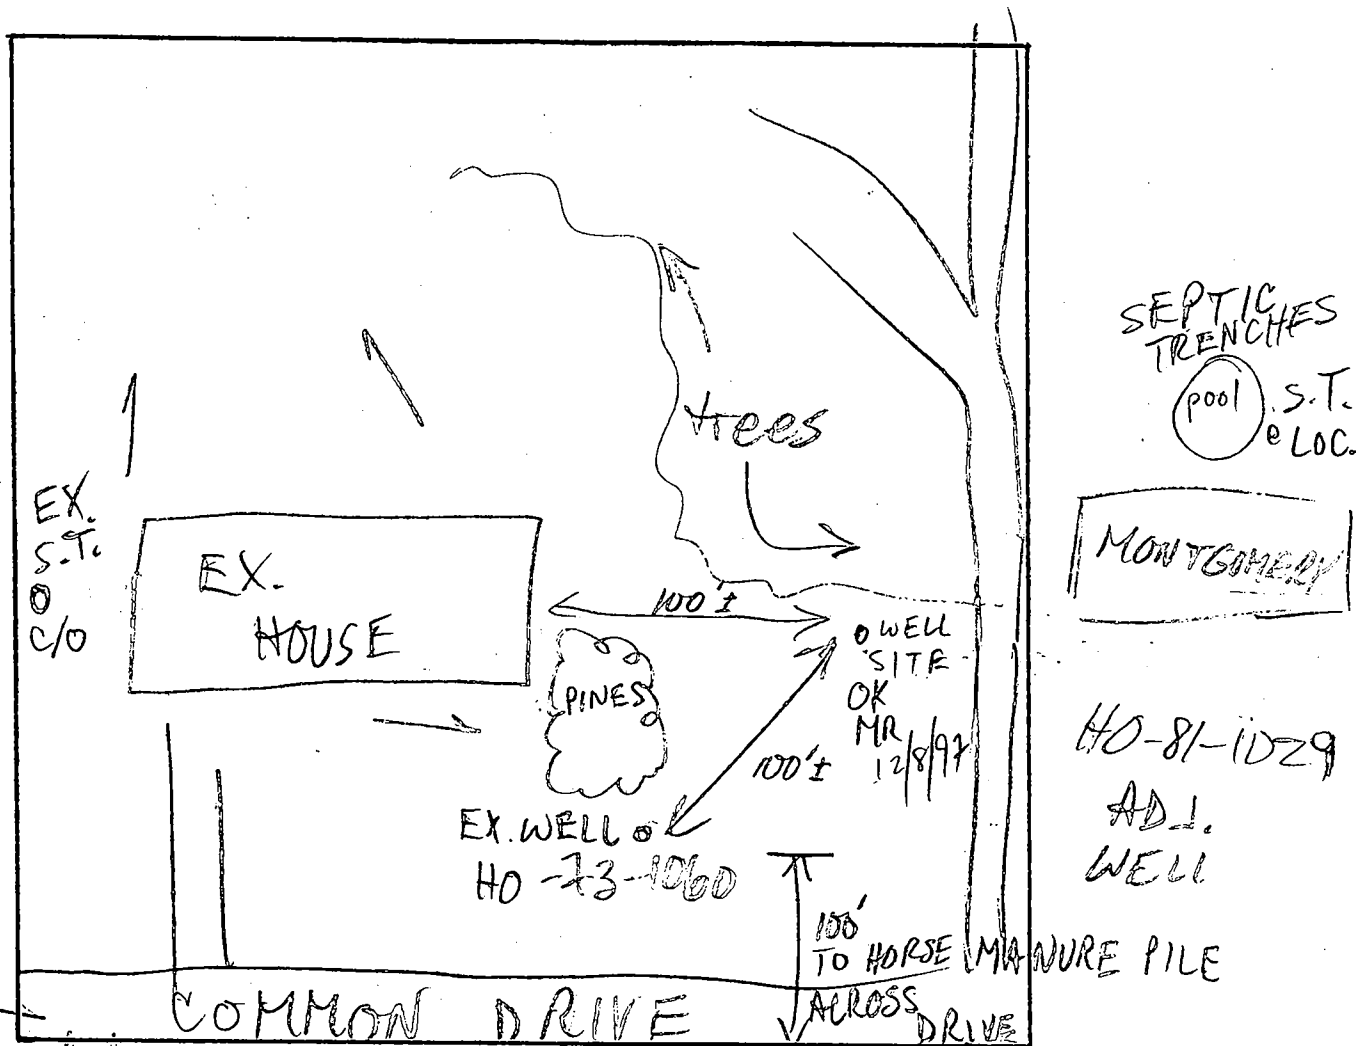 SEPTIC
TRENCHES
pool
S.T.
LOC.
trees
EX.
S.T.
C/O
EX.
HOUSE
MONTGOMERY
100'±
WELL
SITE
OK
MR
12/8/97
PINES
100'±
HO-81-1029
ADJ.
WELL
EX. WELL
HO-73-1060
100'
TO HORSE MANURE PILE
ACROSS
DRIVE
COMMON DRIVE